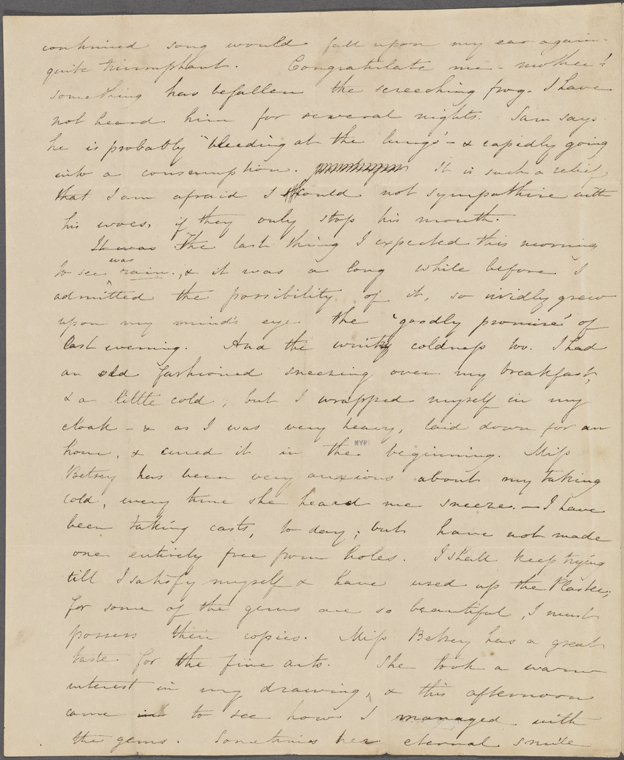 continued song would fall upon my ear again
quite triumphant. Congratulate me - mother!
something has befallen the screeching frog. I have
not heard him for several nights. Sam says
he is probably "bleeding at the lungs" - & rapidly going
into a consumption. It is such a relief,
that I am afraid I should not sympathize with
his woes, if they only stop his mouth.
It was the last thing I expected this morning
to see was rain, & it was a long while before I
admitted the possibility of it, so vividly grew
upon my mind's eye the "goodly promise" of
last evening. And the wintry coldness too. I had
an old fashioned sneezing over my breakfast,
& a little cold, but I wrapped myself in my
cloak - & as I was very heavy, laid down for an
hour, & cured it in the beginning. Miss
Betsey has been very anxious about my taking
cold, every time she heard me sneeze. - I have
been taking casts, to day; but have not made
one entirely free from holes. I shall keep trying
till I satisfy myself & have used up the Plaster,
for some of the gems are so beautiful, I must
possess their copies. Miss Betsey has a great
taste for the fine arts. She took a warm
interest in my drawing, & this afternoon
came in to see how I managed with
the gems. Sometimes her eternal smile